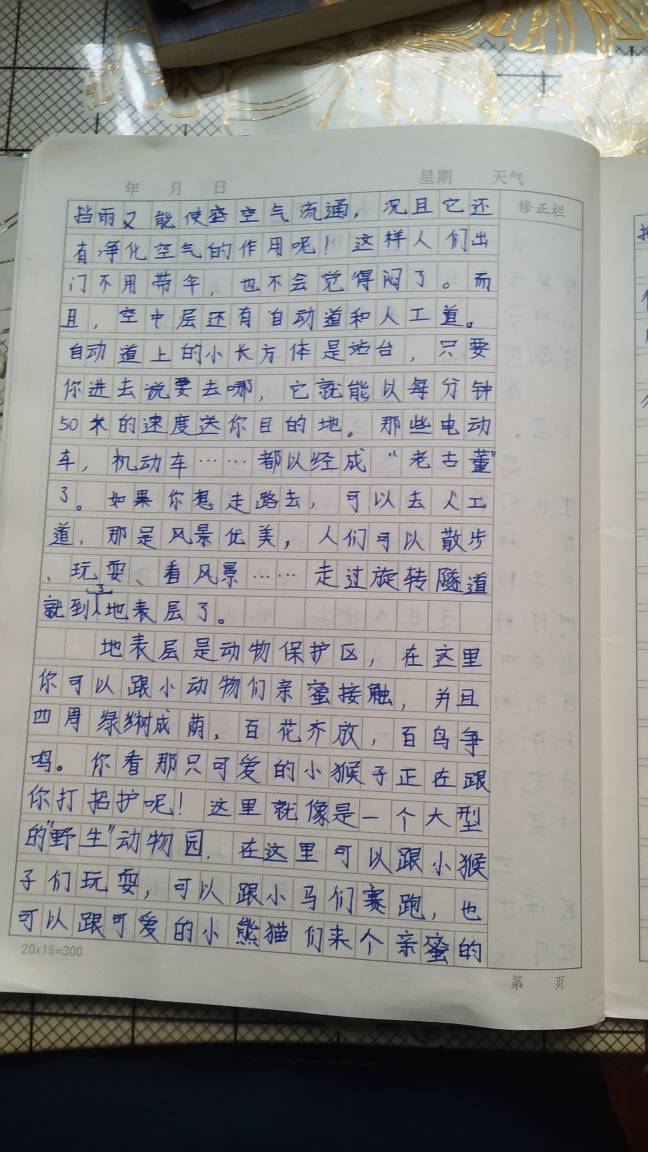 年 月 日 星期 天气
修正栏
挡雨又能使空气流通，况且它还
有净化空气的作用呢！这样人们出
门不用带伞，也不会觉得闷了。而
且，空中层还有自动道和人工道。
自动道上的小长方体是站台，只要
你进去说要去哪，它就能以每分钟
50米的速度送你目的地。那些电动
车，机动车……都以经成“老古董”
了。如果你想走路去，可以去人工
道，那是风景优美，人们可以散步
、玩耍、看风景……走过旋转隧道
就到了地表层了。
地表层是动物保护区，在这里
你可以跟小动物们亲蜜接触，并且
四周绿树成荫，百花齐放，百鸟争
鸣。你看那只可爱的小猴子正在跟
你打招护呢！这里就像是一个大型
的“野生”动物园．在这里可以跟小猴
子们玩耍，可以跟小马们赛跑，也
可以跟可爱的小熊猫们来个亲蜜的
20×15=300
第 页